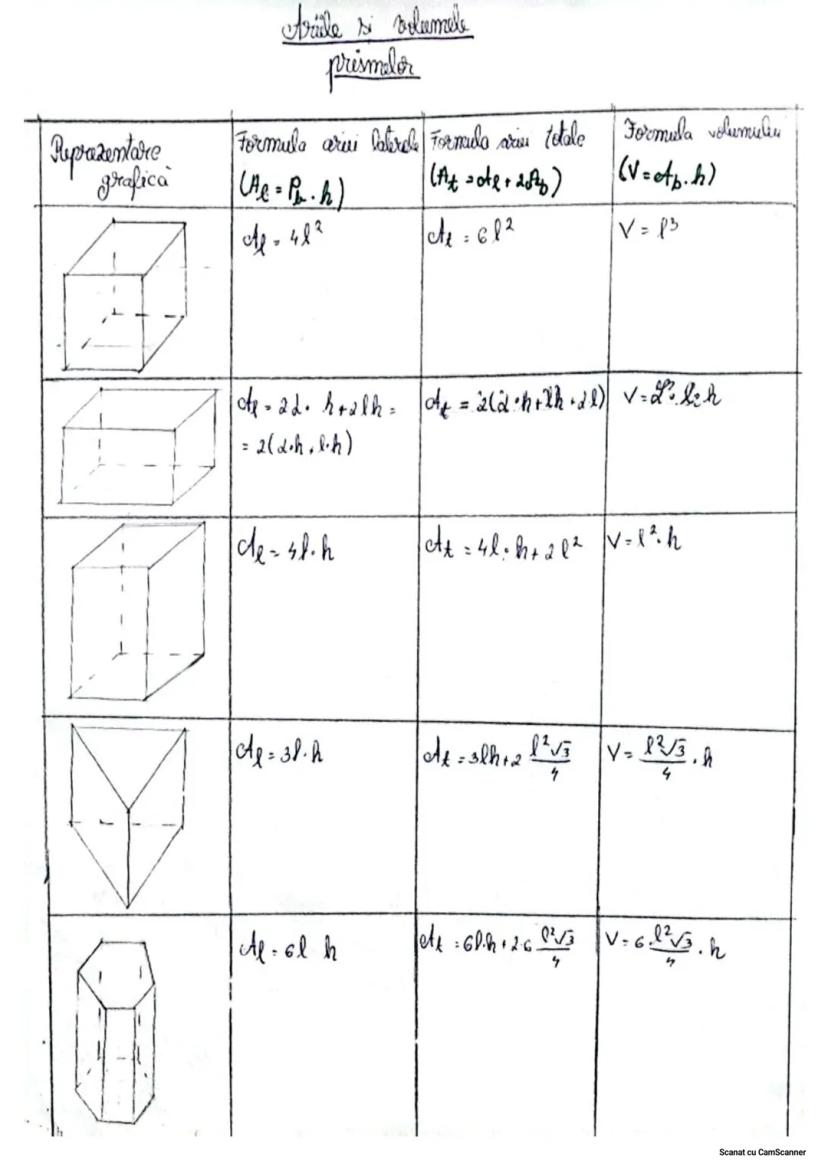 Ariile si volumele
prismelor
Reprezentare grafică
Formula ariei laterale (Al = Pb · h)
Formula ariei totale (At = Al + 2Ab)
Formula volumului (V = Ab · h)
Al = 4l²
At = 6l²
V = l³
Al = 2L · h + 2lh =
= 2(L·h + l·h)
At = 2(L·h + lh + Ll)
V = L · l · h
Al = 4l · h
At = 4l · h + 2l²
V = l² · h
Al = 3l · h
At = 3lh + 2 l²√3/4
V = l²√3/4 · h
Al = 6l h
At = 6l·h + 2·6 l²√3/4
V = 6 · l²√3/4 · h
Scanat cu CamScanner